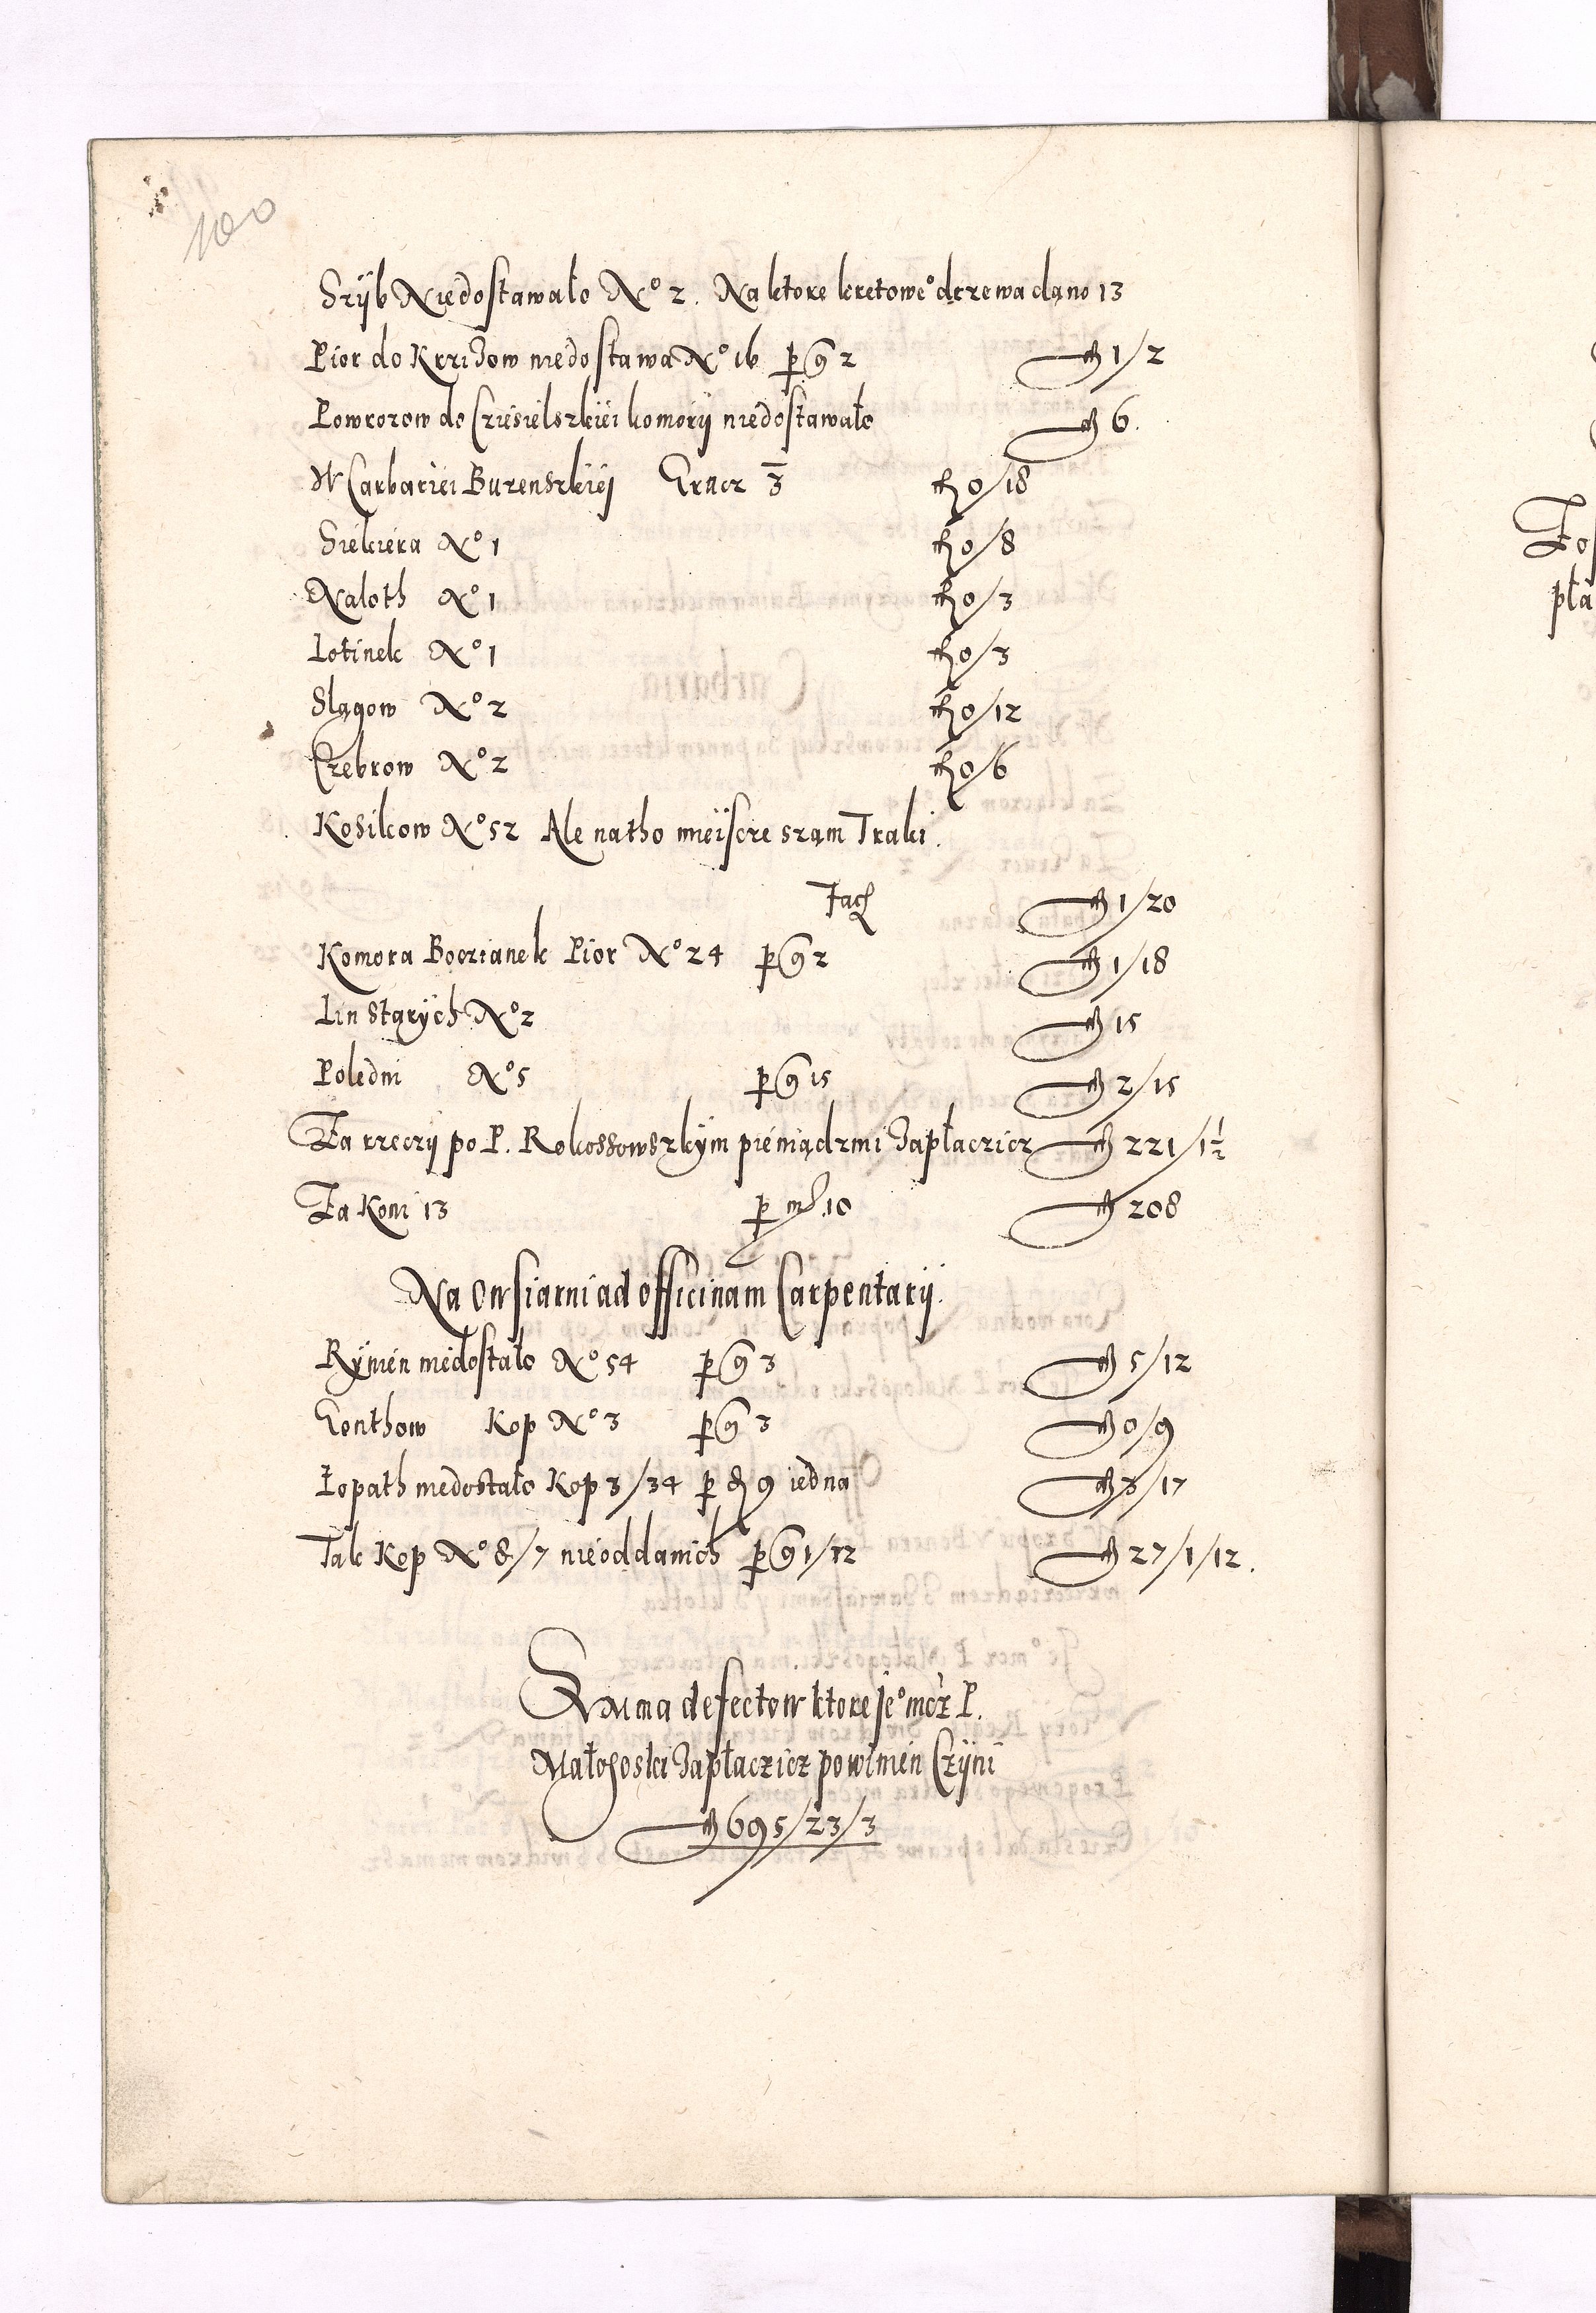 100
Szÿb Niedostawało No 2. Na ktore kretowego drzewa dano 13
Pior do Krziżow niedostawa No 16 per g 2 fl 1/2
Powrozow do Cziesielszkiei komorÿ niedostawało fl 6.
W Carbariei Burenszkÿej Grncz 3 fl 0/18
Siekiera No 1 fl 0/8
Naloth No 1 fl 0/3
Lotinek No 1 fl 0/3
Slągow No 2 fl 0/12
Czebrow No 2 fl 0/6
Kosikow No 52 Ale natho mieÿscze szam Traki.
Fach fl 1/20
Komora Boczianek Pior No 24 per g 2 fl 1/18
Lin Starÿch No 2 fl 15
Poledni No 5 per g 15 fl 2/15
Za rzeczÿ po P. Rokossowszkÿm pieniądzmi Zapłaczicz fl 221/1½
Za Koni 13 per mr. 10 fl 208
Na Owsiarni ad officinam Carpentarÿ.
Rÿnien niedostało No 54 per g 3 fl 5/12
Gonthow Kop No 3 per g 3 fl 0/9
Łopath niedostało Kop 3/34 per d 9 iedna fl 3/17
Tak Kop No 8/7 nieoddanich per g 1/12 fl 27/1/12.
Suma defectow ktore Jeo mcz P.
Małogoski Zapłaczicz powinien Czÿni
fl 695/23/3
Zos
pła